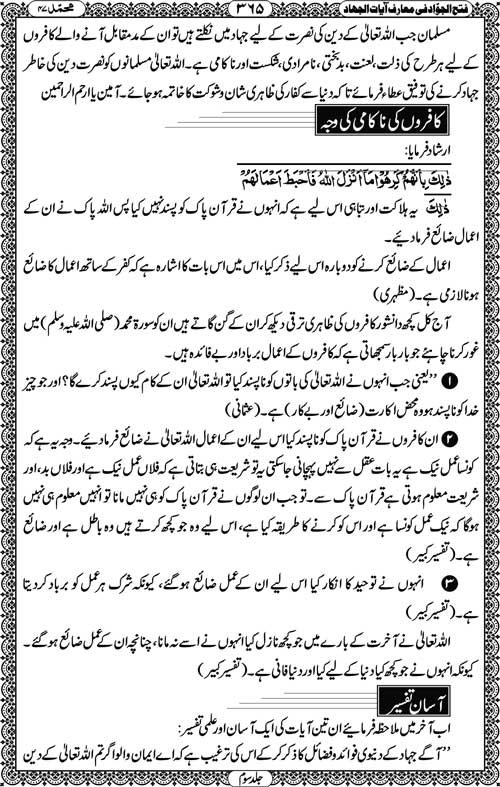 فتح الجوّاد فی معارف آیات الجہاد
۳۶۵
محمّد ۴۷
مسلمان جب اللہ تعالیٰ کے دین کی نصرت کے لیے جہاد میں نکلتے ہیں تو ان کے مدمقابل آنے والے کافروں
کے لیے ہر طرح کی ذلت، لعنت، بدبختی، نامرادی، شکست اور ناکامی ہے۔ اللہ تعالیٰ مسلمانوں کو نصرت دین کی خاطر
جہاد کرنے کی توفیق عطاء فرمائے تاکہ دنیا سے کفار کی ظاہری شان و شوکت کا خاتمہ ہو جائے۔ آمین یا ارحم الراحمین
کافروں کی ناکامی کی وجہ
ارشاد فرمایا:
ذٰلِكَ بِاَنَّهُمْ كَرِهُوْا مَاۤ اَنْزَلَ اللّٰهُ فَاَحْبَطَ اَعْمَالَهُمْ
ذٰلِكَ یہ ہلاکت اور تباہی اس لیے ہے کہ انہوں نے قرآن پاک کو پسند نہیں کیا پس اللہ پاک نے ان کے
اعمال ضائع فرما دیئے۔
اعمال کے ضائع کرنے کو دوبارہ اس لیے ذکر کیا، اس میں اس بات کا اشارہ ہے کہ کفر کے ساتھ اعمال کا ضائع
ہونا لازمی ہے۔ (مظہری)
آج کل کچھ دانشور کافروں کی ظاہری ترقی دیکھ کر ان کے گن گاتے ہیں ان کو سورۃ محمد (صلی اللہ علیہ وسلم) میں
غور کرنا چاہئے جو بار بار سمجھاتی ہے کہ کافروں کے اعمال برباد اور بے فائدہ ہیں۔
۱ ’’یعنی جب انہوں نے اللہ تعالیٰ کی باتوں کو ناپسند کیا تو اللہ تعالیٰ ان کے کام کیوں پسند کرے گا؟ اور جو چیز
خدا کو ناپسند ہو وہ محض اکارت (ضائع اور بے کار) ہے۔ (عثمانی)
۲ ان کافروں نے قرآن پاک کو ناپسند کیا اس لیے ان کے اعمال اللہ تعالیٰ نے ضائع فرما دیئے۔ وجہ یہ ہے کہ
کونسا عمل نیک ہے یہ بات عقل سے نہیں پہچانی جا سکتی یہ تو شریعت ہی بتاتی ہے کہ فلاں عمل نیک ہے اور فلاں بد، اور
شریعت معلوم ہوتی ہے قرآن پاک سے۔ تو جب ان لوگوں نے قرآن پاک کو ہی نہیں مانا تو انہیں معلوم ہی نہیں
ہوگا کہ نیک عمل کونسا ہے اور اس کو کرنے کا طریقہ کیا ہے، اس لیے وہ جو کچھ کرتے ہیں وہ باطل ہے اور ضائع
ہے۔ (تفسیر کبیر)
۳ انہوں نے توحید کا انکار کیا اس لیے ان کے عمل ضائع ہو گئے، کیونکہ شرک ہر عمل کو برباد کر دیتا
ہے۔ (تفسیر کبیر)
اللہ تعالیٰ نے آخرت کے بارے میں جو کچھ نازل کیا انہوں نے اسے نہ مانا، چنانچہ ان کے عمل ضائع ہو گئے۔
کیونکہ انہوں نے جو کچھ کیا دنیا کے لیے کیا اور دنیا فانی ہے۔ (تفسیر کبیر)
آسان تفسیر
اب آخر میں ملاحظہ فرمائیے ان تین آیات کی ایک آسان اور علمی تفسیر:
’’آگے جہاد کے دنیوی فوائد و فضائل کا ذکر کر کے اس کی ترغیب ہے کہ اے ایمان والو اگر تم اللہ تعالیٰ کے دین
جلد سوم